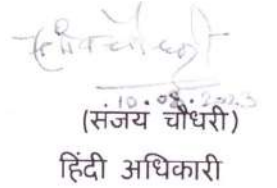 10.08.2023
(संजय चौधरी)
हिंदी अधिकारी